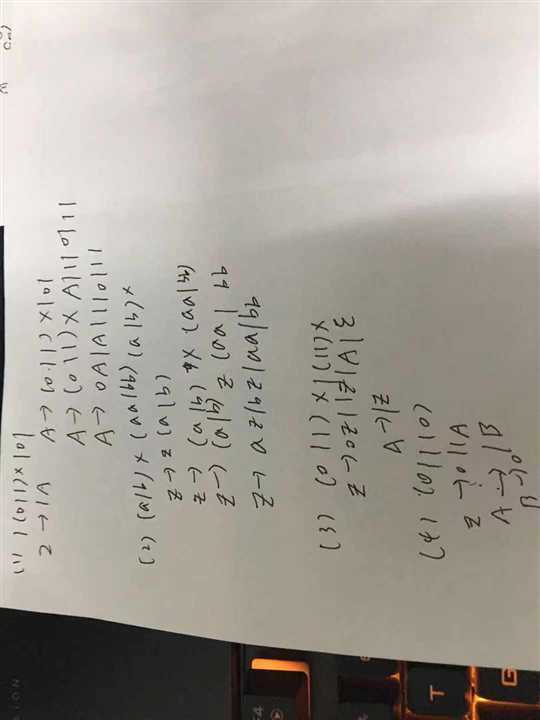 (1) 1(0|1)×101
Z→1A A→(0|1)×101
A→(0|1)×A|1101|1
A→0A|A|1101|1
(2) (a|b)×(aa|bb)(a|b)×
Z→Z(a|b)
Z→(a|b)×(aa|bb)
Z→(a|b)Z(aa|bb
Z→aZ|bZ|aa|bb
(3) (0|1)×|(11)×
Z→0Z|1Z|1A|ε
A→1Z
(4) (01110)
Z→0|1A
A→1B
B→0
T
G
F4